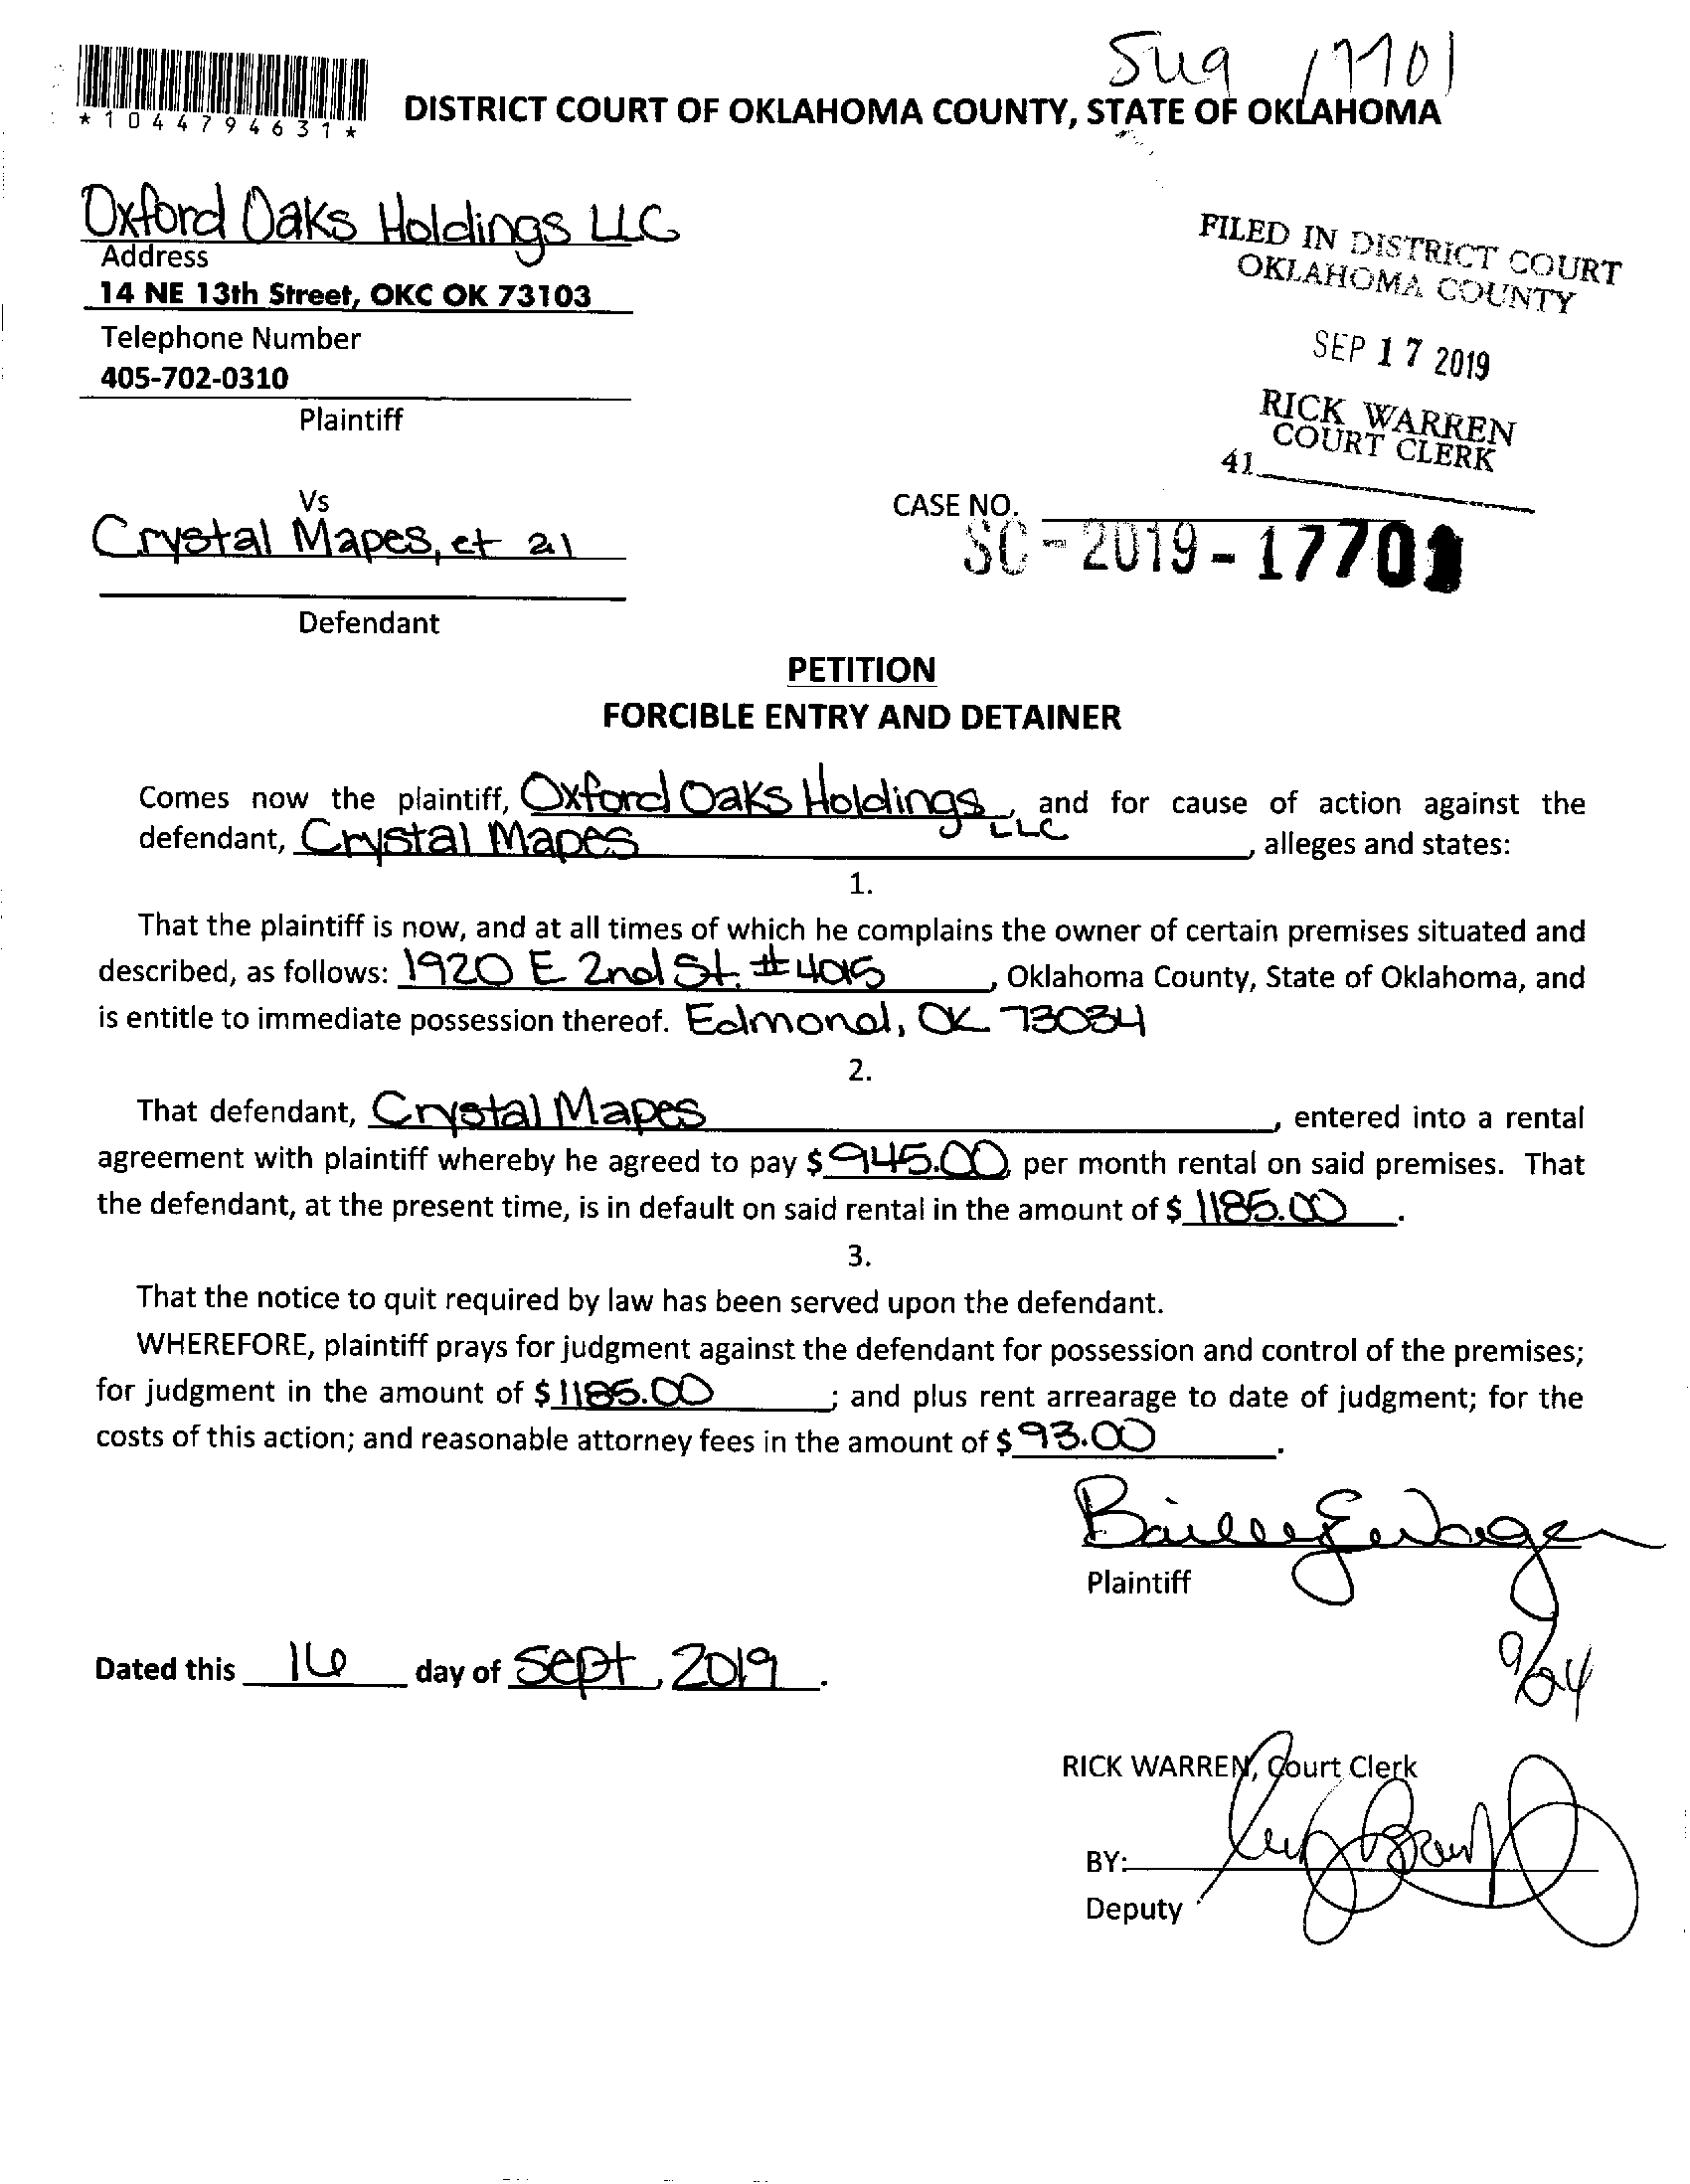 17701
*1044794631*
DISTRICT COURT OF OKLAHOMA COUNTY, STATE OF OKLAHOMA
Oxford Oaks Holdings LLC
Address
14 NE 13th Street, OKC OK 73103
Telephone Number
405-702-0310
Plaintiff
FILED IN DISTRICT COURT
OKLAHOMA COUNTY
SEP 17 2019
RICK WARREN
COURT CLERK
41
Vs
Crystal Mapes, et al
Defendant
CASE NO.
SC-2019-17701
PETITION
FORCIBLE ENTRY AND DETAINER
Comes now the plaintiff, Oxford Oaks Holdings LLC, and for cause of action against the
defendant, Crystal Mapes, alleges and states:
1.
That the plaintiff is now, and at all times of which he complains the owner of certain premises situated and
described, as follows: 1920 E 2nd St. #4015, Oklahoma County, State of Oklahoma, and
is entitle to immediate possession thereof. Edmond, OK 73034
2.
That defendant, Crystal Mapes, entered into a rental
agreement with plaintiff whereby he agreed to pay $945.00, per month rental on said premises. That
the defendant, at the present time, is in default on said rental in the amount of $1185.00.
3.
That the notice to quit required by law has been served upon the defendant.
WHEREFORE, plaintiff prays for judgment against the defendant for possession and control of the premises;
for judgment in the amount of $1185.00; and plus rent arrearage to date of judgment; for the
costs of this action; and reasonable attorney fees in the amount of $93.00.
Plaintiff
9/24
Dated this 16 day of Sept, 2019.
RICK WARREN, Court Clerk
BY:
Deputy